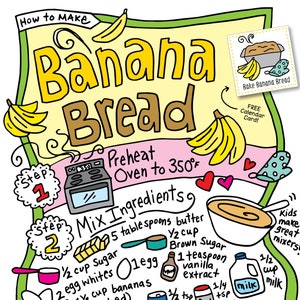 How to MAKE
Banana
Bread
Bake Banana Bread
FREE
Calendar
Card!
Preheat
Oven to 350°F
Step
1
Step
2
Mix Ingredients
5 tablespoons butter
½ cup
Brown Sugar
½ cup sugar
2 egg whites
1 egg
1 teaspoon
vanilla
extract
1/4
½ cup
milk
milk
kids
make
great
mixers
cup bananas